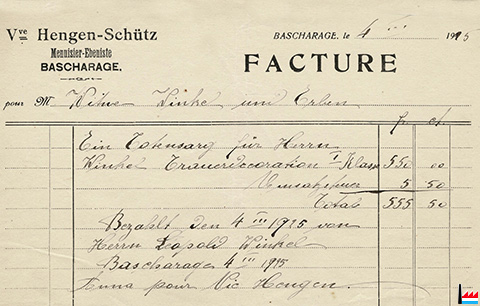 Vve Hengen-Schütz
Menuisier-Ebeniste
BASCHARAGE.
BASCHARAGE, le 4 III 1925
FACTURE
pour M. Witwe Winkel und Erben
fr. ct.
Ein Totensarg für Herrn
Winkel Trauerdecoration I Klasse 550 00
Umsatzsteuer 5 50
Total 555 50
Bezahlt den 4 III 1925 von
Herrn Leopold Winkel
Bascharage 4 III 1925
Anna pour Vve Hengen.